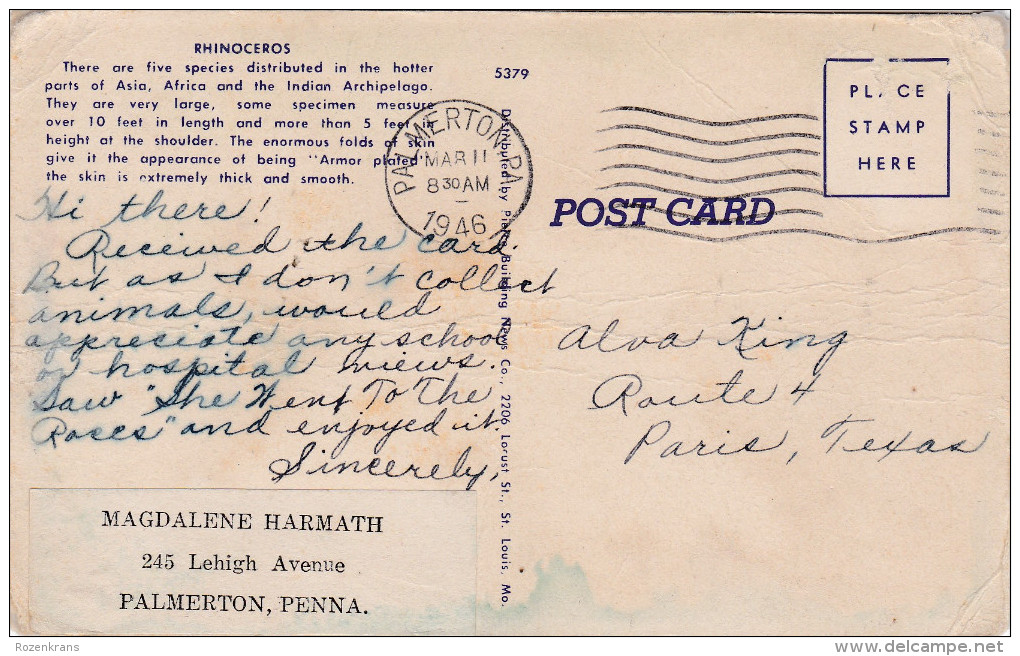 RHINOCEROS
There are five species distributed in the hotter
parts of Asia, Africa and the Indian Archipelago.
They are very large, some specimen measure
over 10 feet in length and more than 5 feet in
height at the shoulder. The enormous folds of skin
give it the appearance of being "Armor plated"
the skin is extremely thick and smooth.
5379
PALMERTON, PA.
MAR 11
8 30 AM
1946
PLACE
STAMP
HERE
POST CARD
Distributed by Plaza Building News Co., 2206 Locust St., St. Louis, Mo.
Hi there!
Received the card.
But as I don't collect
animals, would
appreciate any school
or hospital views.
Saw "She Went To The
Races" and enjoyed it.
Sincerely,
MAGDALENE HARMATH
245 Lehigh Avenue
PALMERTON, PENNA.
Alva King
Route 4
Paris, Texas
Rozenkrans
www.delcampe.net